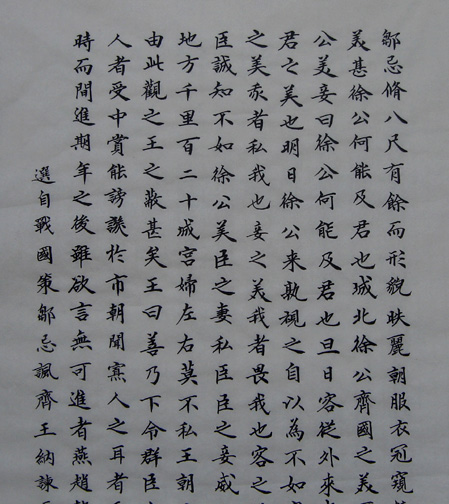 鄒忌脩八尺有餘而形貌昳麗朝服衣冠窺
美甚徐公何能及君也城北徐公齊國之美
公美妾曰徐公何能及君也旦日客從外來
君之美也明日徐公來孰視之自以為不如
之美我者私我也妾之美我者畏我也客之
臣誠知不如徐公美臣之妻私臣臣之妾威
地方千里百二十城宮婦左右莫不私王朝
由此觀之王之蔽甚矣王曰善乃下令群臣
人者受中賞能謗譏於市朝聞寡人之耳者
時而間進期年之後雖欲言無可進者燕趙
選自戰國策鄒忌諷齊王納諫